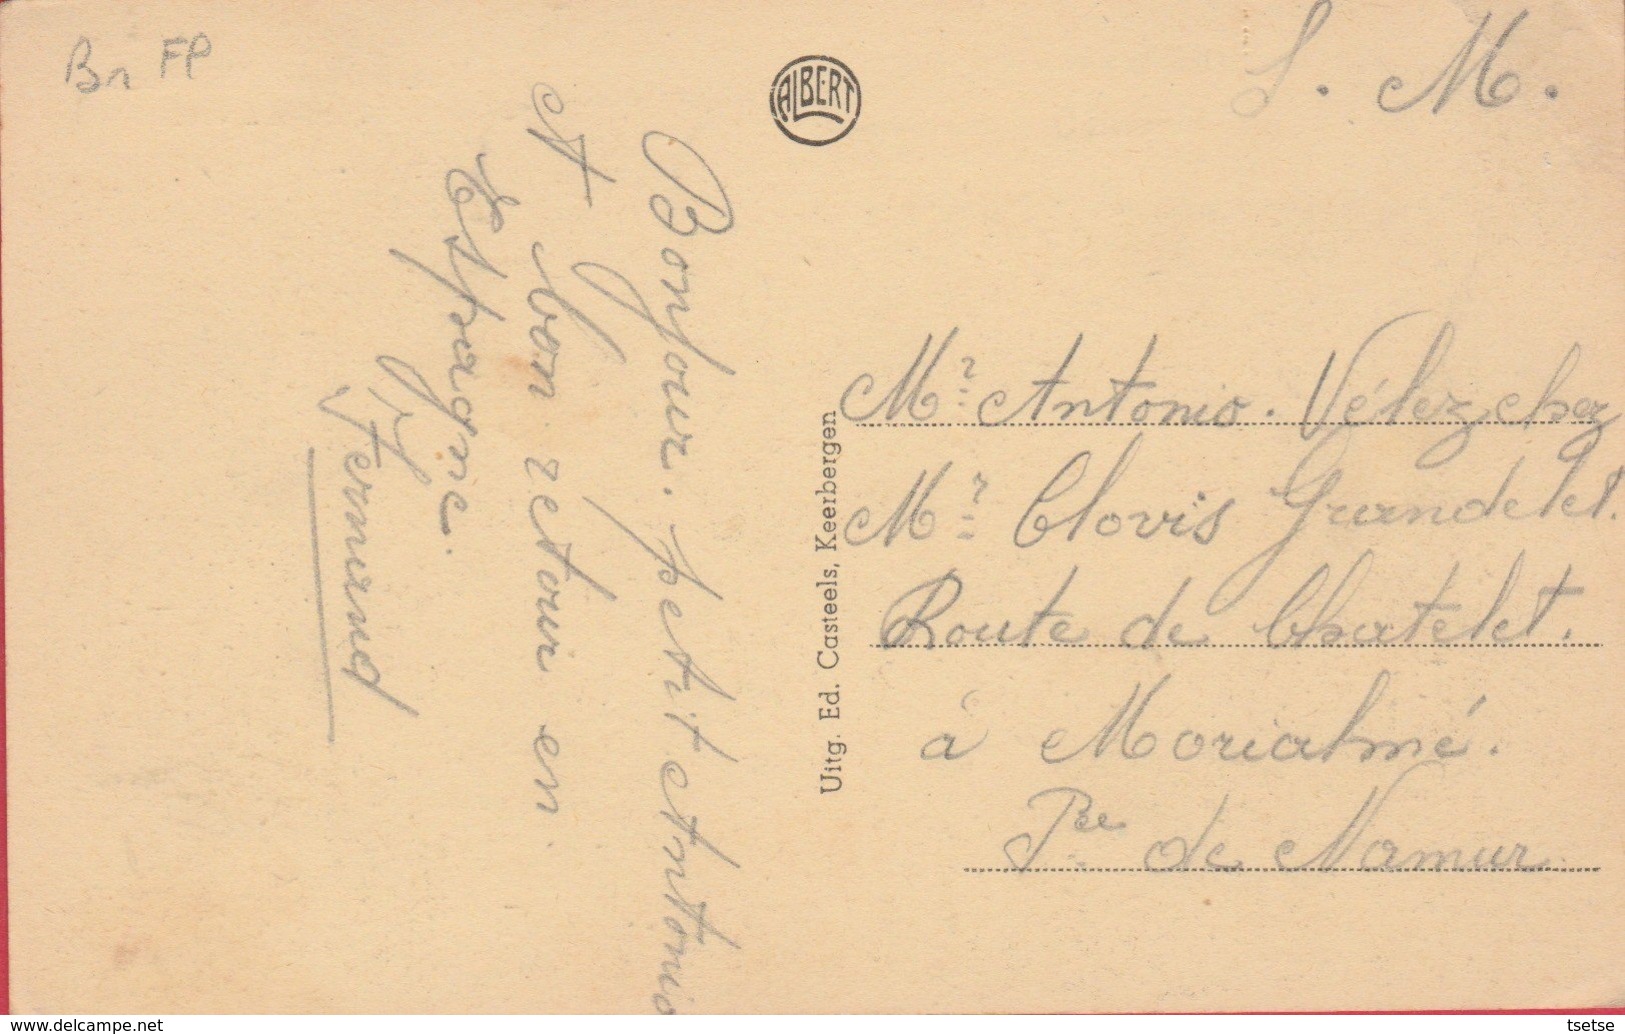 Bn FP
ALBERT
S. M.
Bonjour. petit Antonio
et bon retour en
Espagne.
Fernand
Uitg. Ed. Casteels, Keerbergen
Mr Antonio. Vélez chez
Mr Clovis Grandelet.
Route de Chatelet.
à Morialmé.
Pce de Namur
www.delcampe.net
tsetse